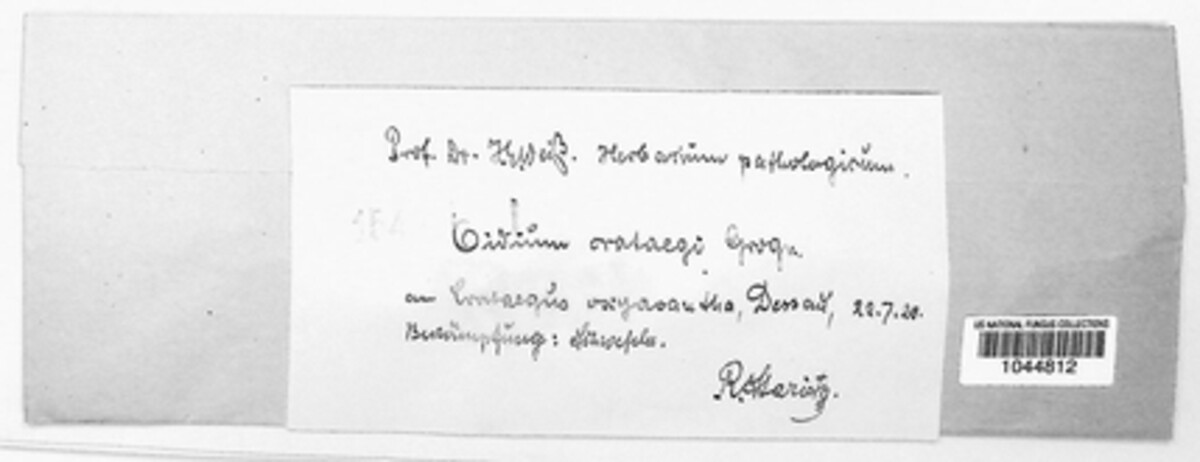 Prof. Dr. H. Weiß. Herbarium pathologicum.
Oidium crataegi Grogn.
an Crataegus oxyacantha, Dessau, 22.7.20.
Bekämpfung: Schwefeln.
R. Staritz.
US NATIONAL FUNGUS COLLECTIONS
1044812